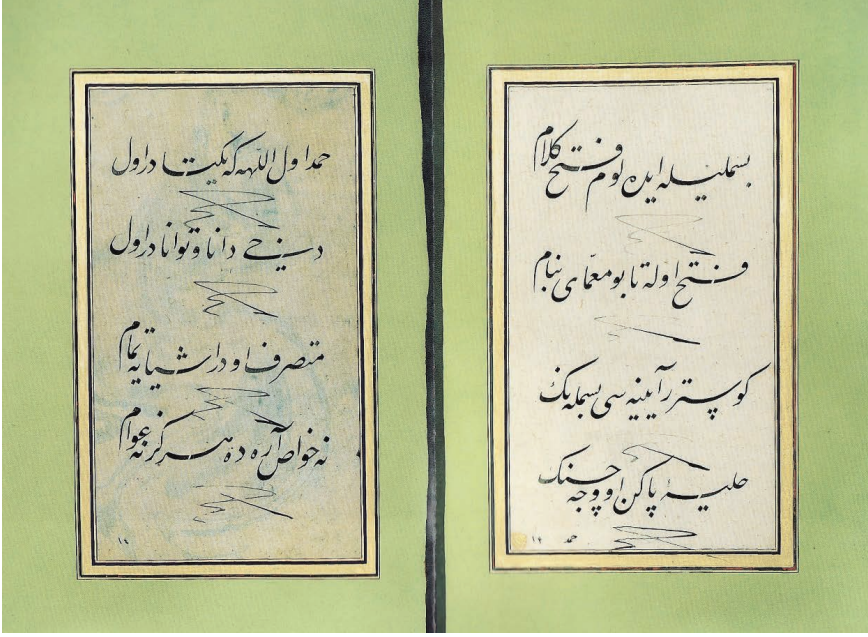 بسملیله ایده لوم فتح کلام
فتح اوله تا بو معمّای بنام
کوستر آیینه سی بسمله نك
حلیهٔ پاکن او وجه حسنك
حمد
حمد اول اللهه که یکتادر اول
دخی دانا و توانادر اول
متصرف او در اشیایه تمام
نه خواص آره ده هرگز نه عوام